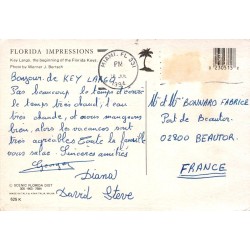 FLORIDA IMPRESSIONS
Key Largo, the beginning of the Florida Keys.
Photo by Werner J. Bertsch
MIAMI, FL
PM
1994
Bonjour de KEY LARGO
Pas beaucoup le temps d'écrire
le temps très chaud, l'eau
très chaude, et nous mangeons
bien, alors les vacances sont
très agréables. Toute la famille
vous salue. Sincères amitiés
Georges
Diana
David Steve
Mr et Mme BONNARD FABRICE
Port de Beautor
02800 BEAUTOR
FRANCE
625 K